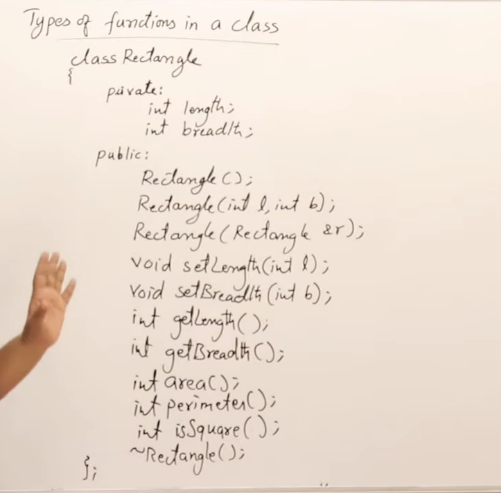 Types of functions in a class
class Rectangle
{
private:
int length;
int breadth;
public:
Rectangle();
Rectangle(int l, int b);
Rectangle(Rectangle &r);
void setLength(int l);
void setBreadth(int b);
int getLength();
int getBreadth();
int area();
int perimeter();
int isSquare();
~Rectangle();
};